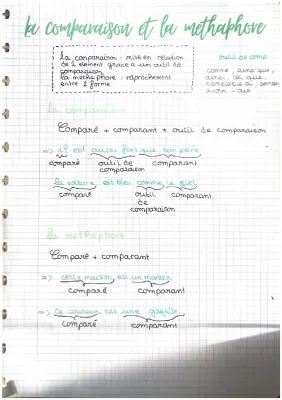 la comparaison et la methaphore
la comparaison : mise en relation
de 2 element grace a un outil de
comparaison
la methaphore : raprochement
entre 2 forme
outil de comp
comme, ainsi que,
ainsi, tel que,
avoir l'air
la comparaison
Comparé + comparant + outil de comparaison
=> il est aussi fort que son père
comparé outil de comparant
comparaison
la voiture est bleu comme le ciel
comparé outil comparant
de
comparaison
la methaphore
Comparé + comparant
=> cette maison est un manoir
comparé comparant
=> ce coureur est une gazelle
comparé comparant